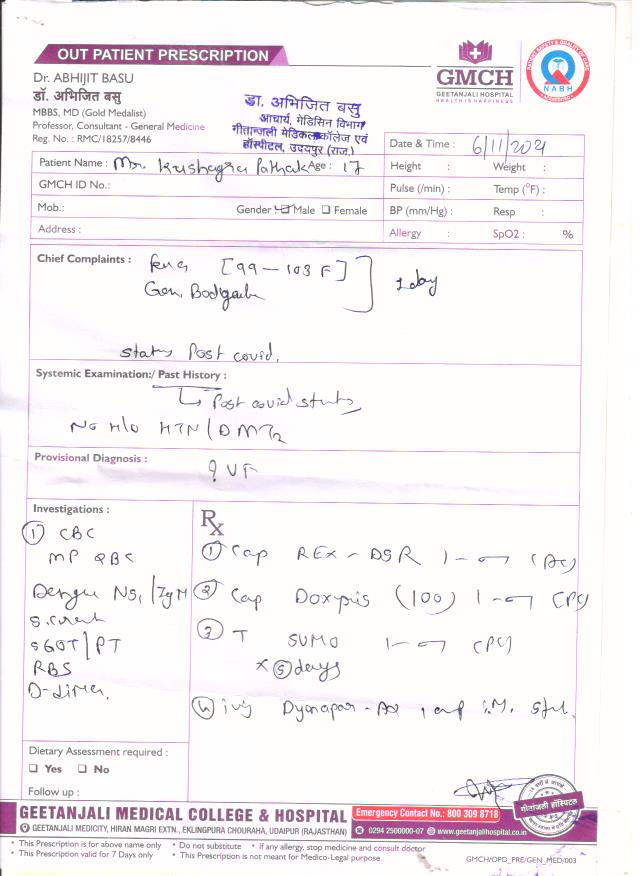 OUT PATIENT PRESCRIPTION
GMCH
GEETANJALI HOSPITAL
HEALTH IS HAPPINESS
NABH
Dr. ABHIJIT BASU
डॉ. अभिजित बसु
MBBS, MD (Gold Medalist)
Professor, Consultant - General Medicine
Reg. No. : RMC/18257/8446
डा. अभिजित बसु
आचार्य, मेडिसिन विभाग
गीतान्जली मेडिकल कॉलेज एवं
हॉस्पीटल, उदयपुर (राज.)
Date & Time : 6/11/2021
Patient Name : Mr. Kushagra Pathak Age : 17
Height : Weight :
GMCH ID No.:
Pulse (/min) : Temp (°F) :
Mob.: Gender : ☑ Male ☐ Female
BP (mm/Hg) : Resp :
Address :
Allergy : SpO2 : %
Chief Complaints :
[99 – 103 F]
Gen. 1 day
status Post covid.
Systemic Examination:/ Past History :
Post covid status
No H/o HTN/DMT2
Provisional Diagnosis :
? VF
Investigations :
① CBC
MP QBC
Dengue NS1/IgM
S. creat
SGOT/PT
RBS
D-dimer
Rx
① Cap REX - DSR 1 (AC)
② Cap Doxypis (100) 1 (PC)
③ T SUMO 1 (PC)
x ⑤ days
④ inj Dynapar-AQ 1 amp i.M. stat.
Dietary Assessment required :
☐ Yes ☐ No
Follow up :
गीतांजली हॉस्पिटल
GEETANJALI MEDICAL COLLEGE & HOSPITAL
Emergency Contact No.: 800 309 8718
GEETANJALI MEDICITY, HIRAN MAGRI EXTN., EKLINGPURA CHOURAHA, UDAIPUR (RAJASTHAN)
0294 2500000-07 www.geetanjalihospital.co.in
• This Prescription is for above name only • Do not substitute • If any allergy, stop medicine and consult doctor
• This Prescription valid for 7 Days only • This Prescription is not meant for Medico-Legal purpose.
GMCH/OPD_PRE/GEN_MED/003